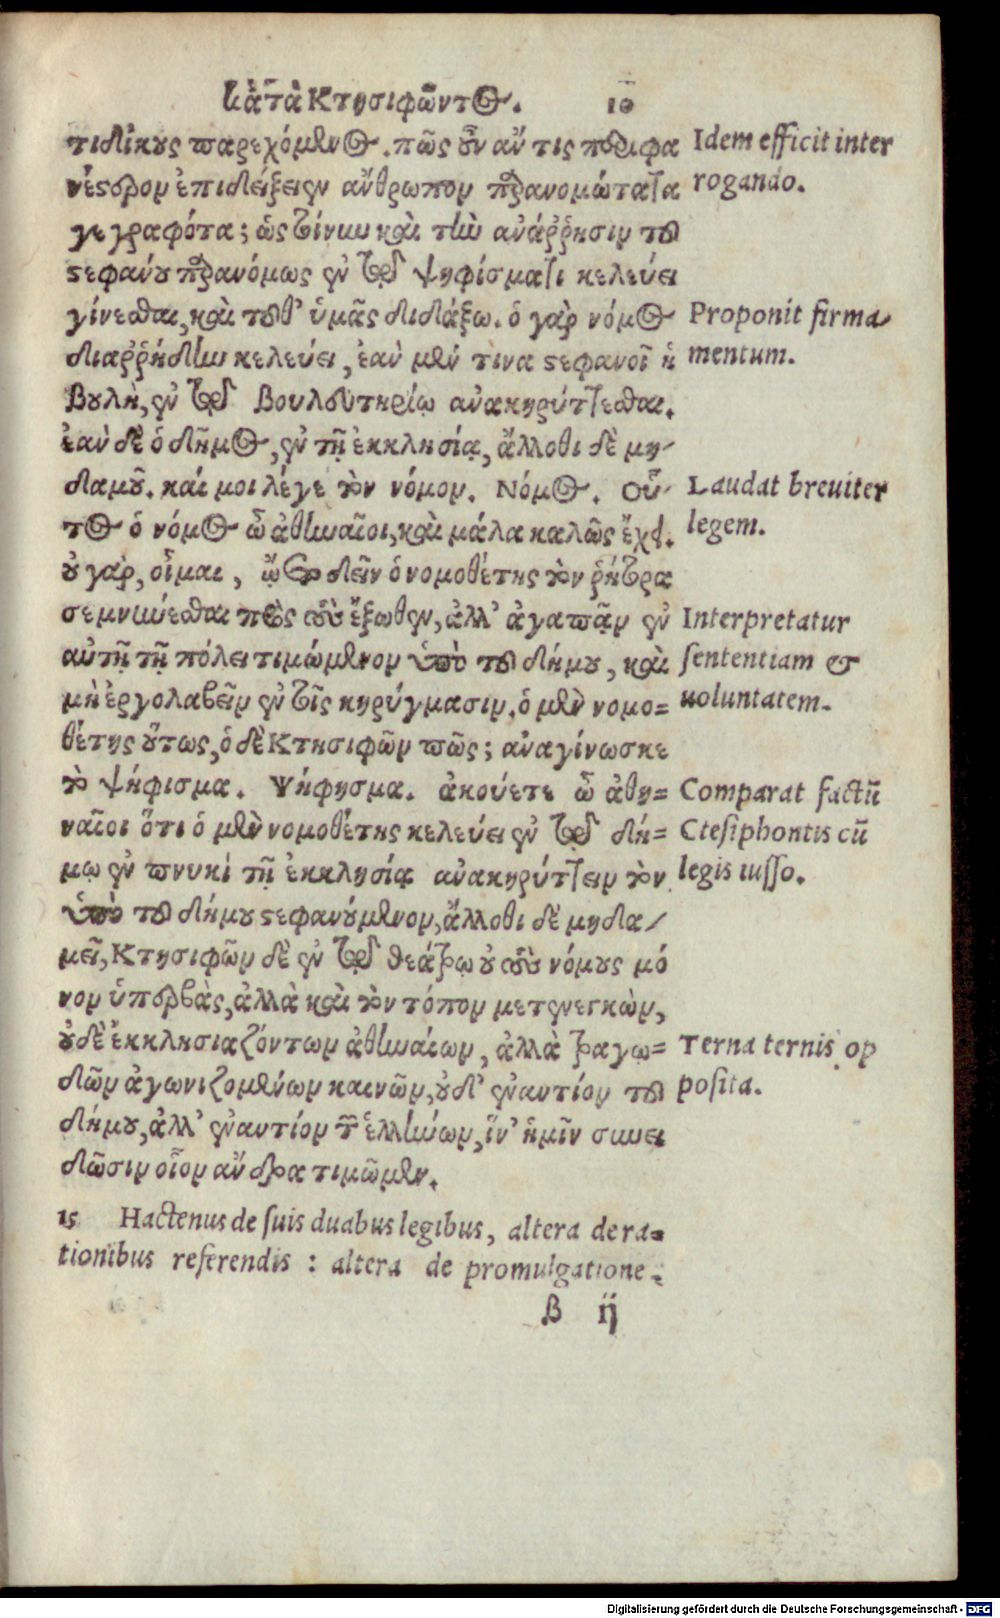 κατὰ Κτησιφῶντος. 10
τιδίκους παρεχόμενος. πῶς οὖν ἄν τις περιφα
νέστερον ἐπιδείξειεν ἄνθρωπον παρανομώτατα
γεγραφότα; ὡς τοίνυν καὶ τὴν ἀνάῤῥησιν τοῦ
στεφάνου παρανόμως ἐν τῷ ψηφίσματι κελεύει
γίνεσθαι, καὶ τοῦθ' ὑμᾶς διδάξω. ὁ γὰρ νόμος
διαῤῥήδην κελεύει, ἐὰν μέν τινα στεφανοῖ ἡ
βουλὴ, ἐν τῷ βουλευτηρίῳ ἀνακηρύττεσθαι.
ἐὰν δὲ ὁ δῆμος, ἐν τῇ ἐκκλησίᾳ, ἄλλοθι δὲ μη-
δαμοῦ. καί μοι λέγε τὸν νόμον. Νόμος. Οὗ-
τος ὁ νόμος ὦ ἀθηναῖοι, καὶ μάλα καλῶς ἔχει.
οὐ γὰρ, οἶμαι, ᾤετο δεῖν ὁ νομοθέτης τὸν ῥήτορα
σεμνύνεσθαι πρὸς τοὺς ἔξωθεν, ἀλλ' ἀγαπᾷν ἐν
αὐτῇ τῇ πόλει τιμώμενον ὑπὸ τοῦ δήμου, καὶ
μὴ ἐργολαβεῖν ἐν τοῖς κηρύγμασιν. ὁ μὲν νομο=
θέτης οὕτως, ὁ δὲ Κτησιφῶν πῶς; ἀναγίνωσκε
τὸ ψήφισμα. Ψήφησμα. ἀκούετε ὦ ἀθη=
ναῖοι ὅτι ὁ μὲν νομοθέτης κελεύει ἐν τῷ δή=
μῳ ἐν πνυκὶ τῇ ἐκκλησίᾳ ἀνακηρύττειν τὸν
ὑπὸ τοῦ δήμου στεφανούμενον, ἄλλοθι δὲ μηδα-
μεῖ, Κτησιφῶν δὲ ἐν τῷ θεάτρῳ οὐ τοὺς νόμους μό
νον ὑπερβὰς, ἀλλὰ καὶ τὸν τόπον μετενεγκὼν,
οὐδὲ ἐκκλησιαζόντων ἀθηναίων, ἀλλὰ τραγῳ=
δῶν ἀγωνιζομένων καινῶν, οὐδ' ἐναντίον τοῦ
δήμου, ἀλλ' ἐναντίον τῶν ἑλλήνων, ἵν' ἡμῖν συνει
δῶσιν οἷον ἄνδρα τιμῶμεν.
15 Hactenus de suis duabus legibus, altera de ra=
tionibus referendis : altera de promulgatione.
B ij
Idem efficit inter
rogando.
Proponit firma
mentum.
Laudat breuiter
legem.
Interpretatur
sententiam &
uoluntatem.
Comparat factũ
Ctesiphontis cũ
legis iusso.
Terna ternis op
posita.
Digitalisierung gefördert durch die Deutsche Forschungsgemeinschaft - DFG